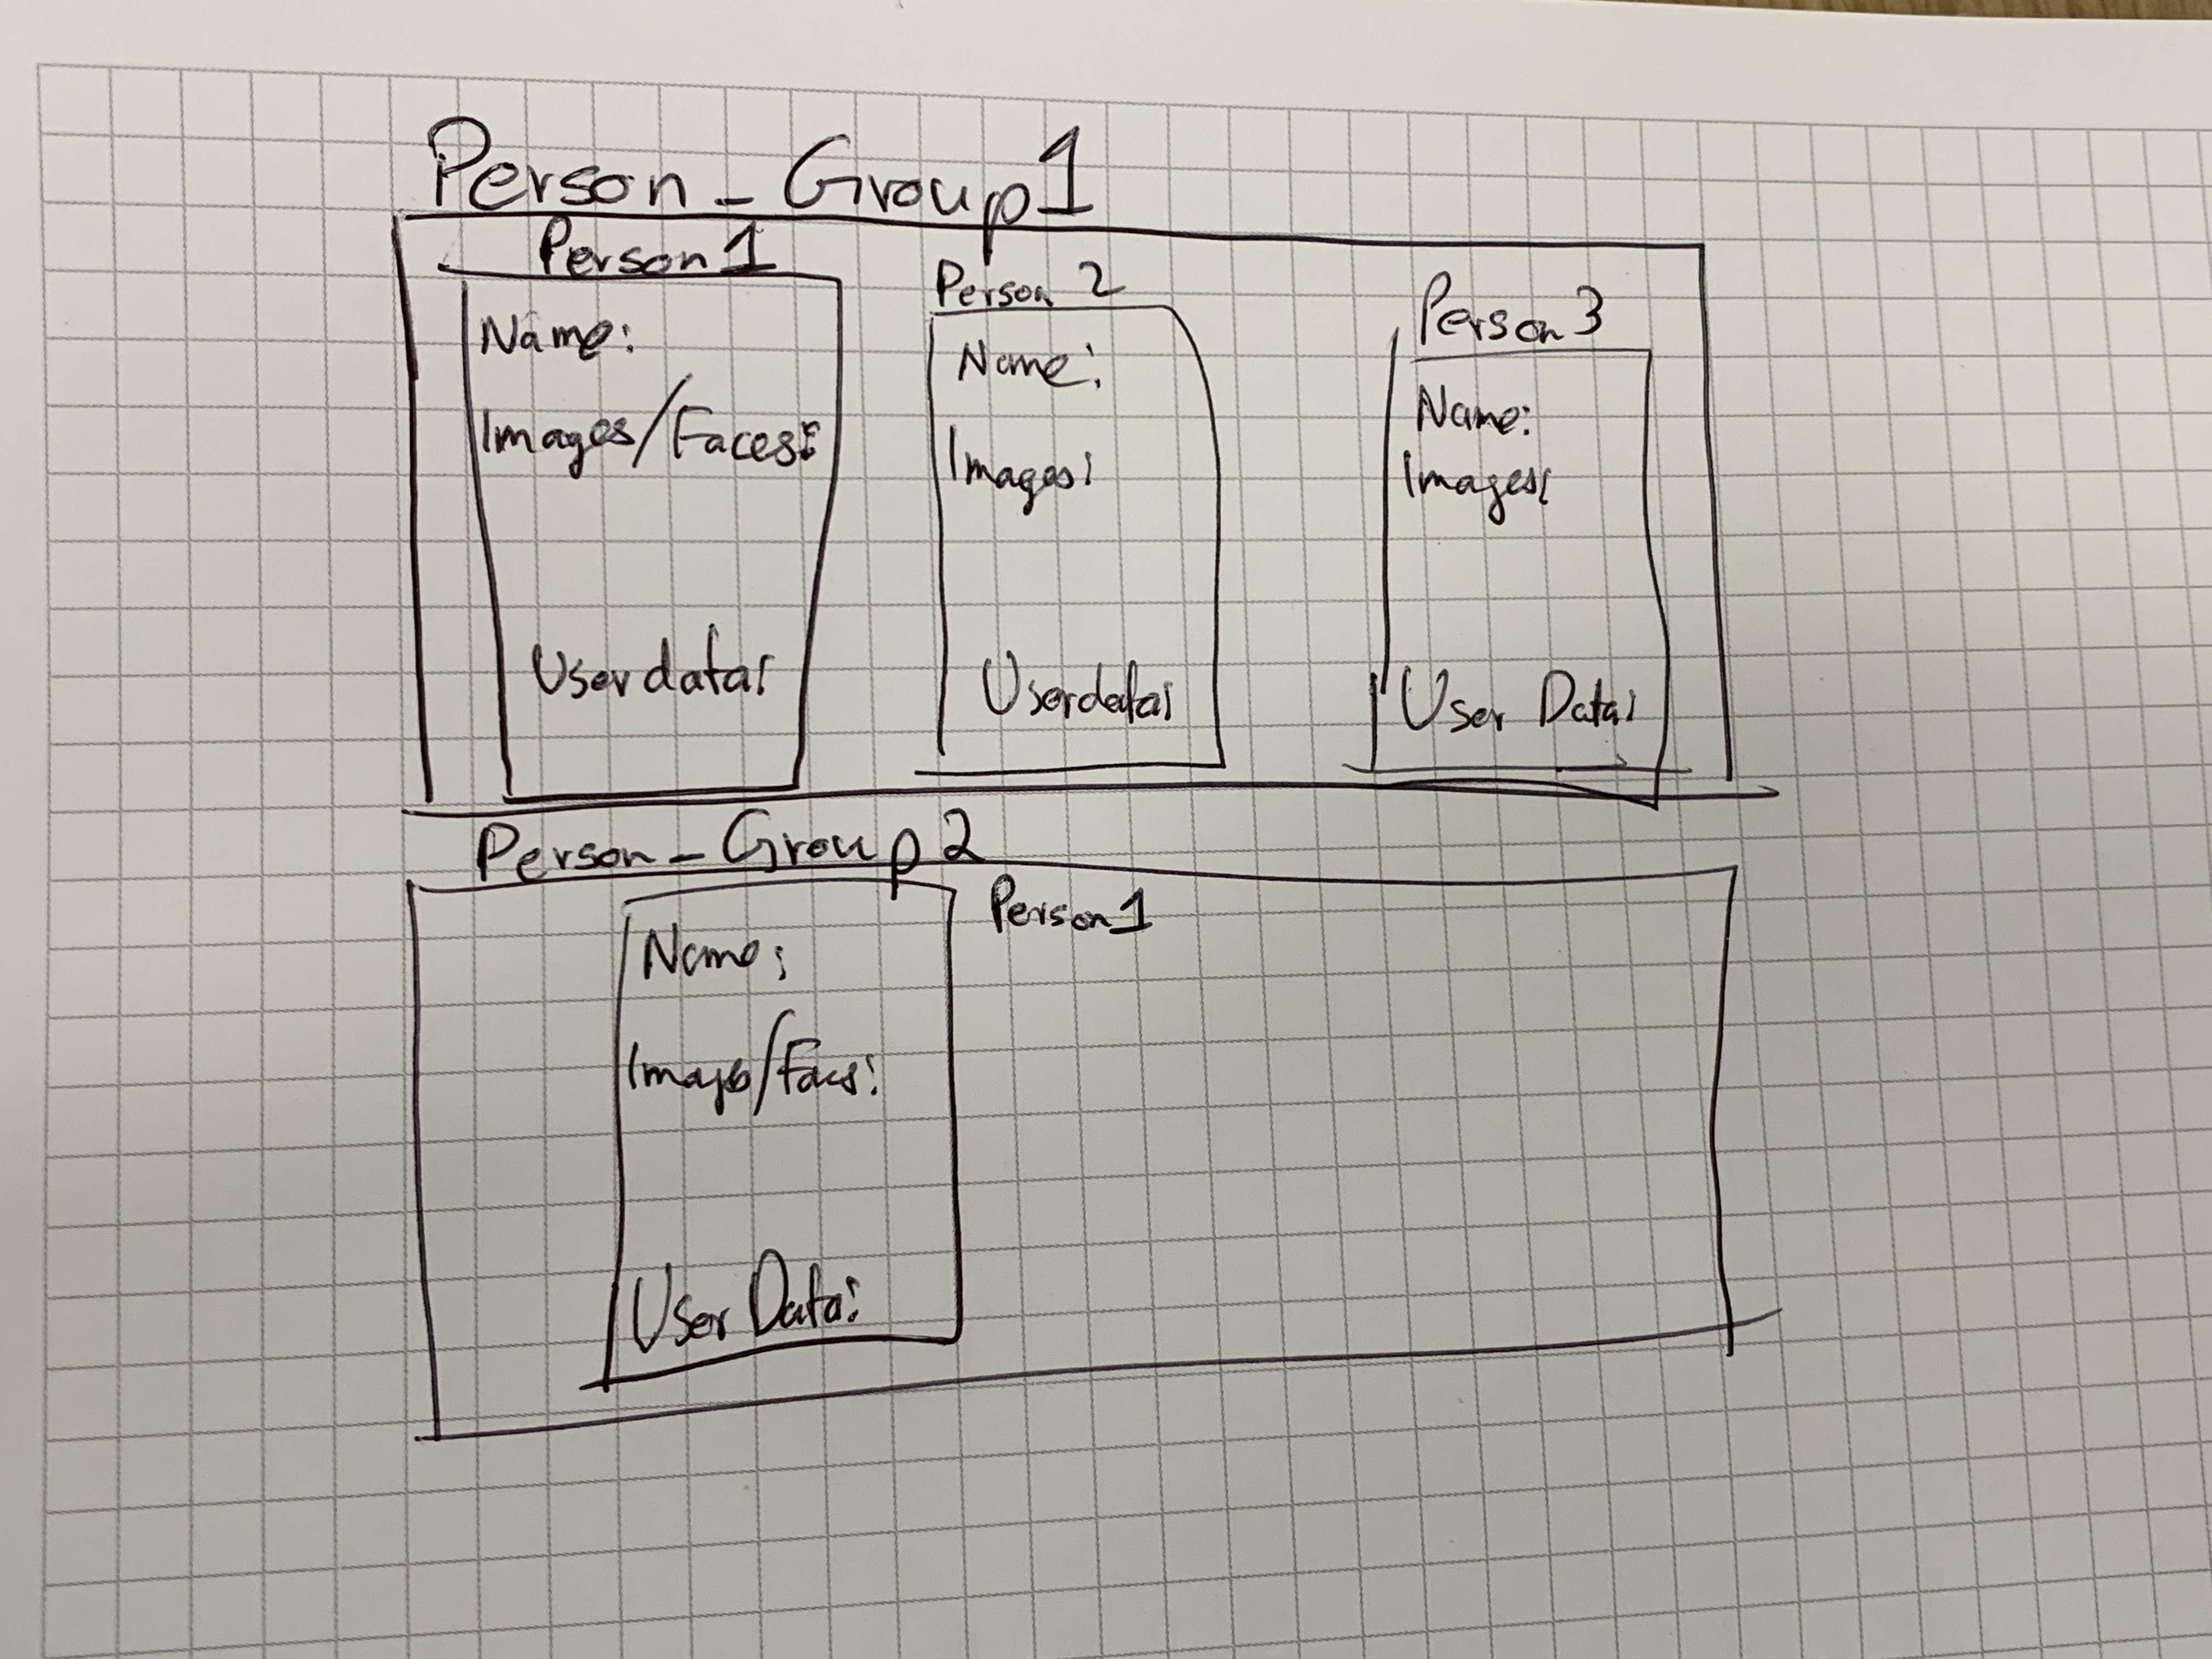 Person_Group1
Person1
Name:
Images/Faces:
Userdata:
Person 2
Name:
Images:
Userdata:
Person 3
Name:
Images:
User Data:
Person_Group2
Person1
Name:
Images/Faces:
User Data: